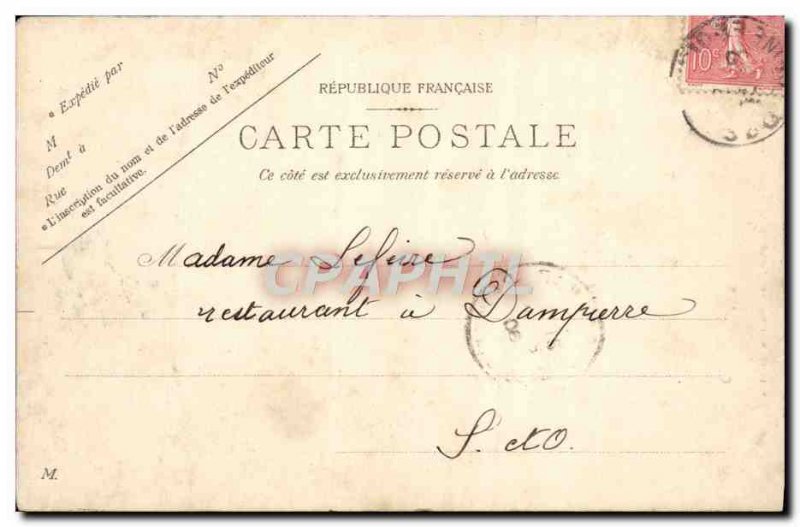 * Expédié par
M
Nº
Demt à
Rue
* L'inscription du nom et de l'adresse de l'expéditeur
est facultative.
RÉPUBLIQUE FRANÇAISE
CARTE POSTALE
Ce côté est exclusivement réservé à l'adresse.
10c
Madame Lefeire
CPAPHIL
restaurant à Dampierre
S. & O.
M.